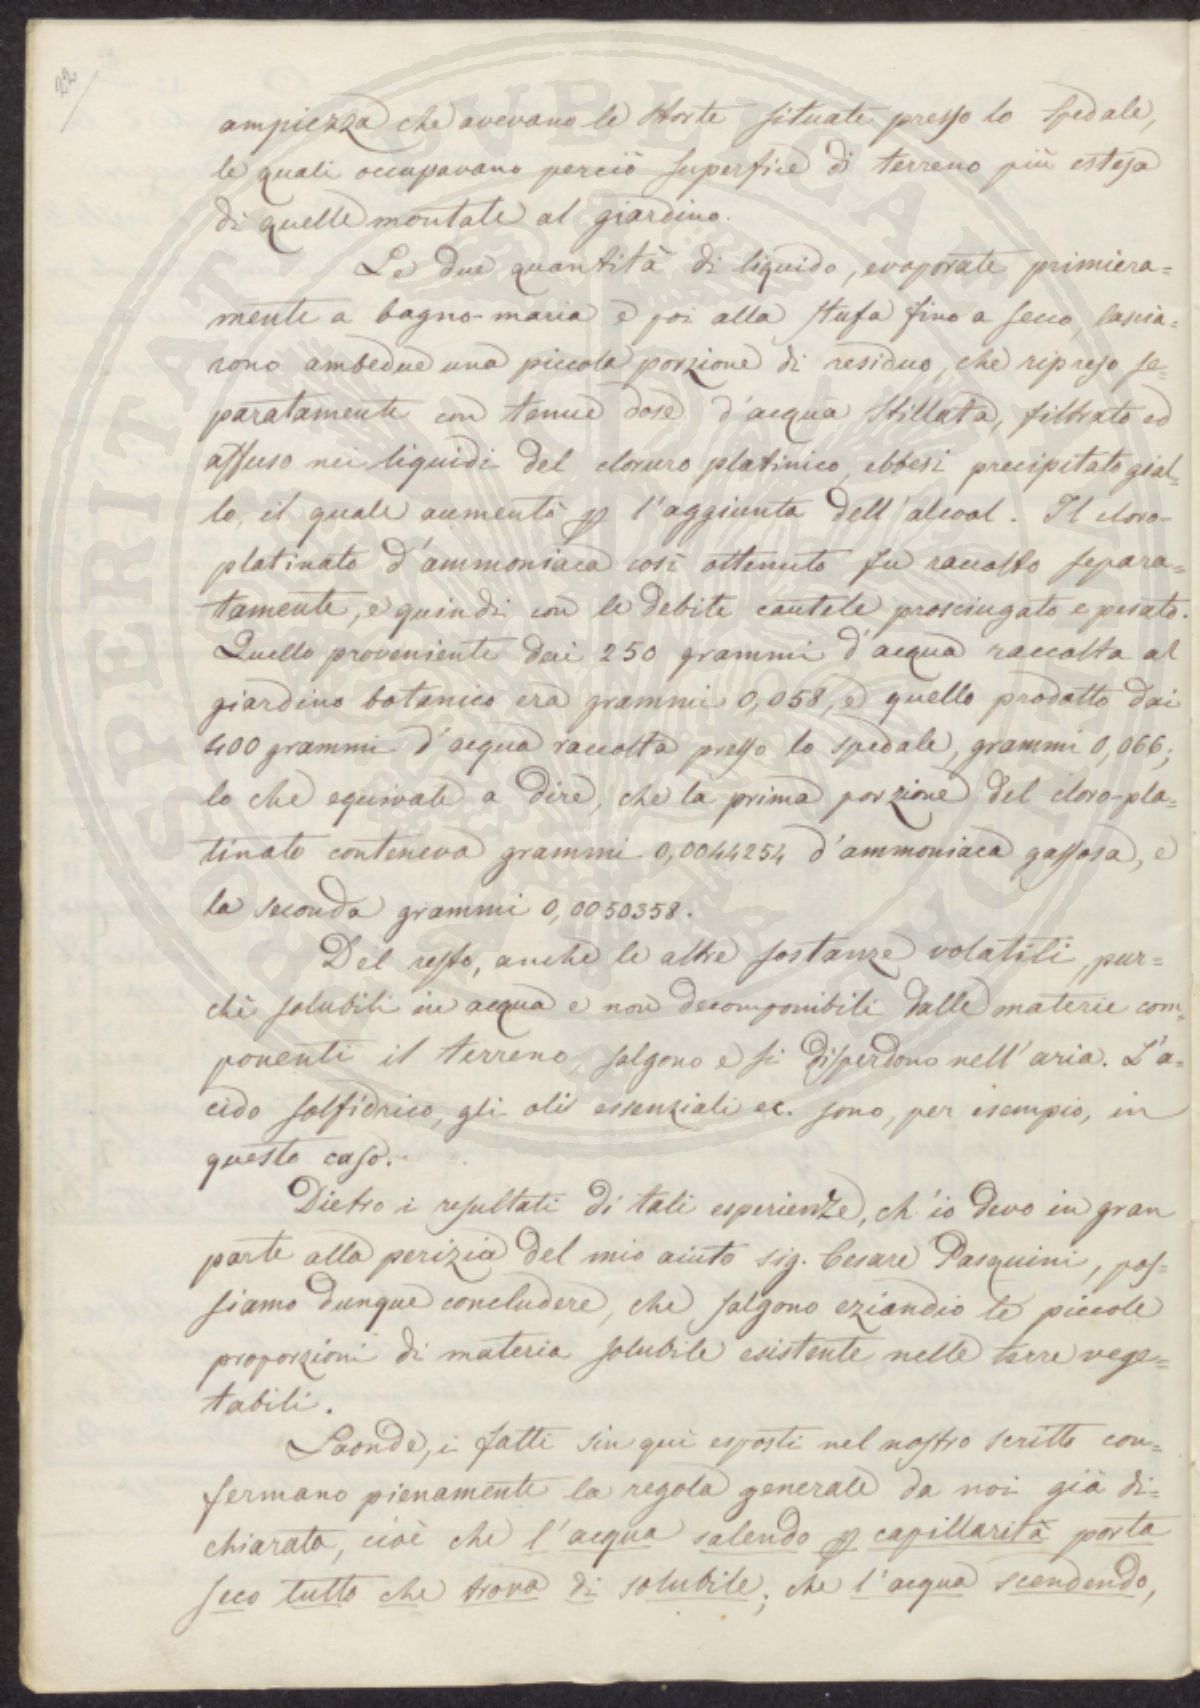 22
ampiezza che avevano le Storte situate presso lo Spedale,
le quali occupavano perciò superficie di terreno più estesa
di quelle montate al giardino.
Le due quantità di liquido, evaporate primiera=
mente a bagno-maria e poi alla stufa fino a secco, lascia=
rono ambedue una piccola porzione di residuo, che ripreso se=
paratamente con tenue dose d'acqua stillata, filtrato ed
affuso nei liquidi del cloruro platinico, ebbesi precipitato gial=
lo, il quale aumentò per l'aggiunta dell'alcool. Il cloro-
platinato d'ammoniaca così ottenuto fu raccolto separa=
tamente, e quindi con le debite cautele prosciugato e pesato.
Quello proveniente dai 250 grammi d'acqua raccolta al
giardino botanico era grammi 0,058, e quello prodotto dai
400 grammi d'acqua raccolta presso lo spedale, grammi 0,066;
lo che equivale a dire, che la prima porzione del cloro-pla=
tinato conteneva grammi 0,0044254 d'ammoniaca gassosa, e
la seconda grammi 0,0050358.
Del resto, anche le altre sostanze volatili, pur=
chè solubili in acqua e non decomponibili dalle materie com=
ponenti il terreno, salgono e si disperdono nell'aria. L'a=
cido solfidrico, gli olii essenziali ec. sono, per esempio, in
questo caso.
Dietro i resultati di tali esperienze, ch'io devo in gran
parte alla perizia del mio aiuto sig. Cesare Pasquini, pos=
siamo dunque concludere, che salgono eziandio le piccole
proporzioni di materia solubile esistente nelle terre vege=
tabili.
Laonde, i fatti sin qui esposti nel nostro scritto con=
fermano pienamente la regola generale da noi già di=
chiarata, cioè che l'acqua salendo per capillarità porta
seco tutto che trova di solubile; che l'acqua scendendo,